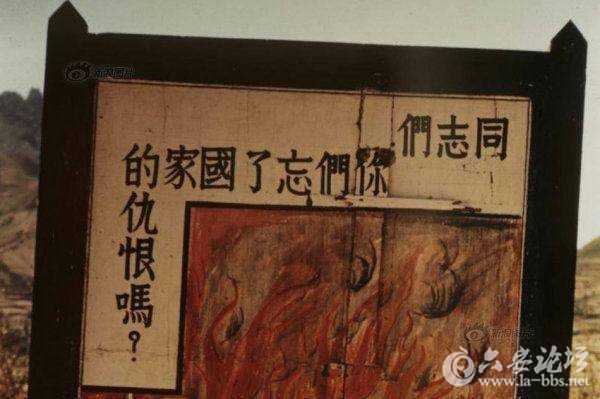 同志們
你們忘了國家的
仇恨嗎？
新浪图片
六安论坛
www.la-bbs.net